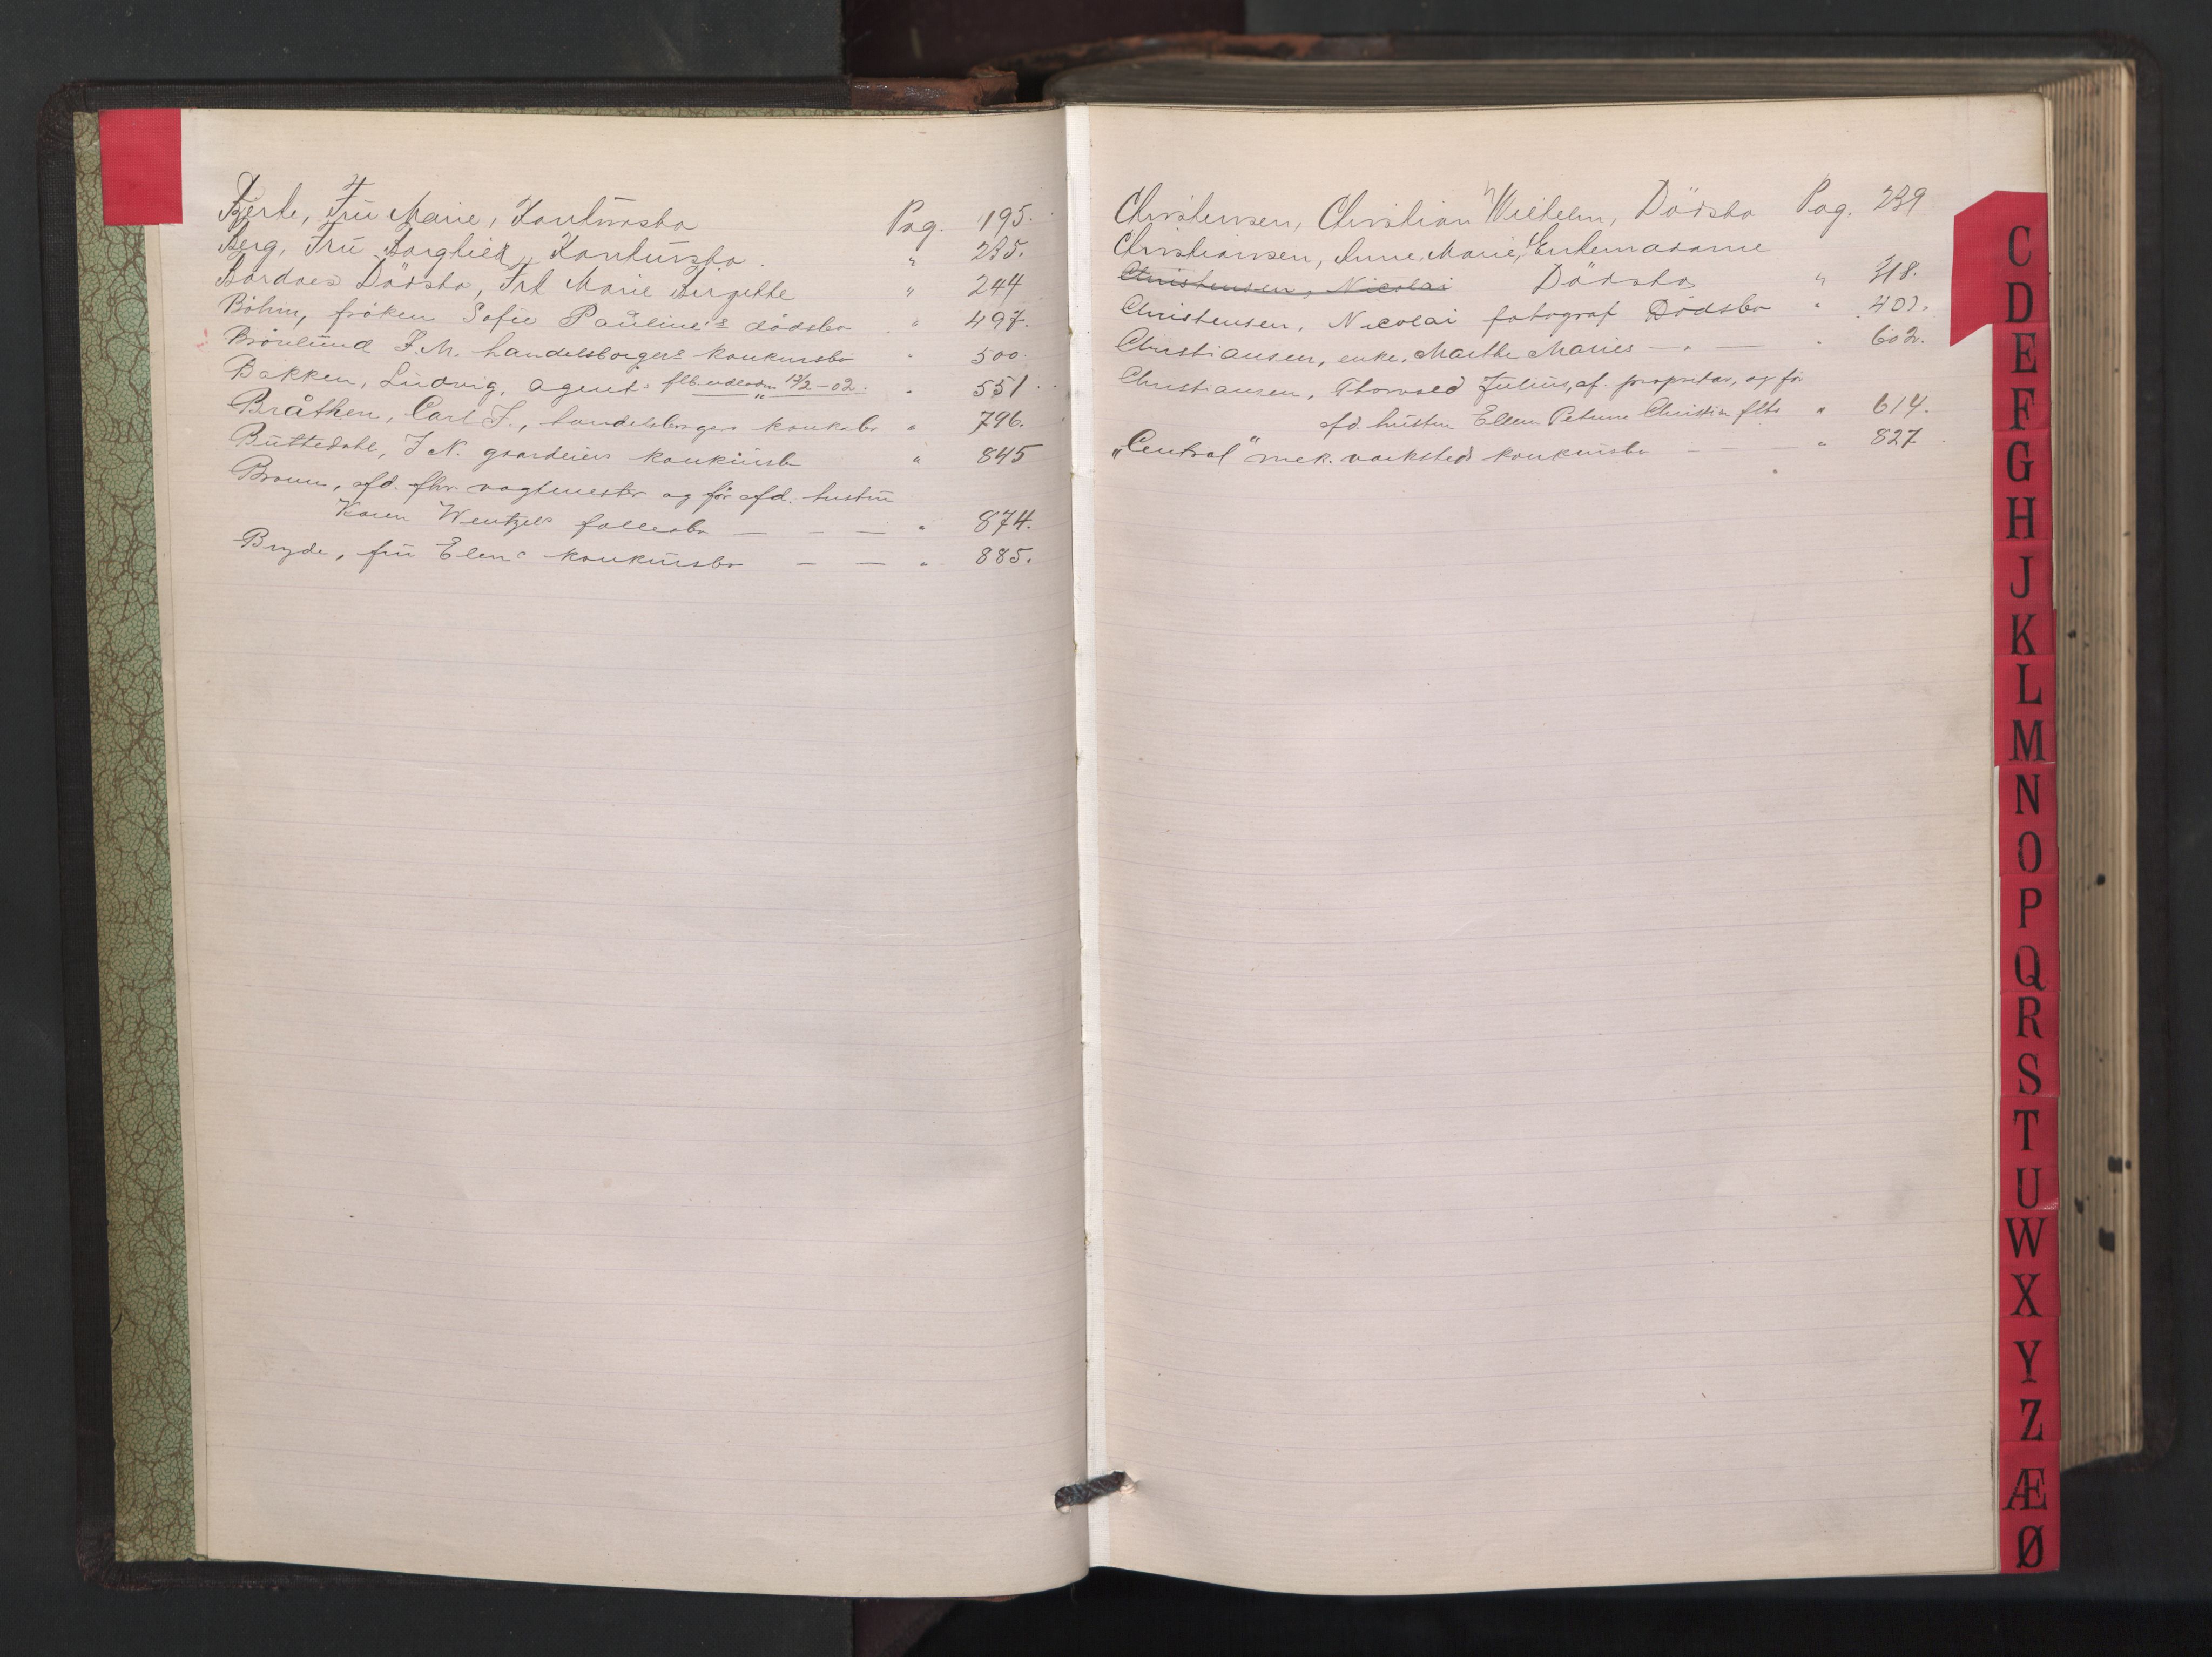 Berle, Frü Marie, Konkürsbo Pag. 195.
Berg, Frü Borghild, Konkürsbo. " 235.
Bardoes Dödsbo, Frk Marie Birgitte " 244
Böhm, fröken Sofie Pauline's dödsbo " 497.
Brönlund J. M. handelsborgers konkursbo " 500.
Bakken, Ludvig, agents flb. 12/2-02. " 551.
Bråthen, Carl J., handelsborgers konk.bo " 796.
Büttedahl, J N. gaardeiers konkürsbo " 845
Brown, afd. fhv. vogtmester og før afd. hustrü
Karen Wentzels fællesbo — — — " 874.
Bryde, frü Elens konkürsbo — — " 885.
Christensen, Christian Wilhelm, Dödsbo Pag. 239
Christiansen, Anne Marie, Enkemadame
Christensen, Nicolai Dödsbo " 318.
Christensen, Nicolai fotograf Dödsbo " 401.
Christiansen, enke, Marthe Maries — " — " 602.
Christiansen, Thorvald Julius, af. proprietær, og før
afd. hüstrü Ellen Petrine Christine flbo " 614.
"Central" mek. værksteds konkürsbo — — — " 827.
C
D
E
F
G
H
J
K
L
M
N
O
P
Q
R
S
T
U
W
X
Y
Z
Æ
Ø